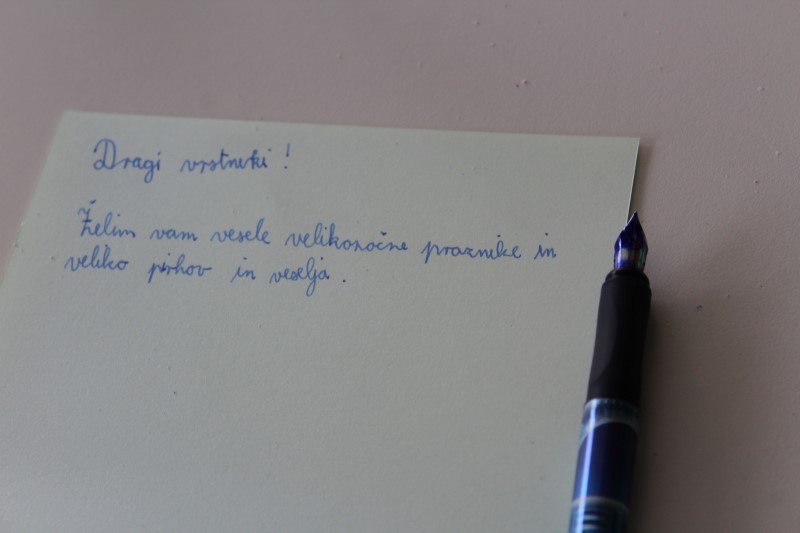 Dragi vrstniki!
Želim vam vesele velikonočne praznike in
veliko pirhov in veselja.